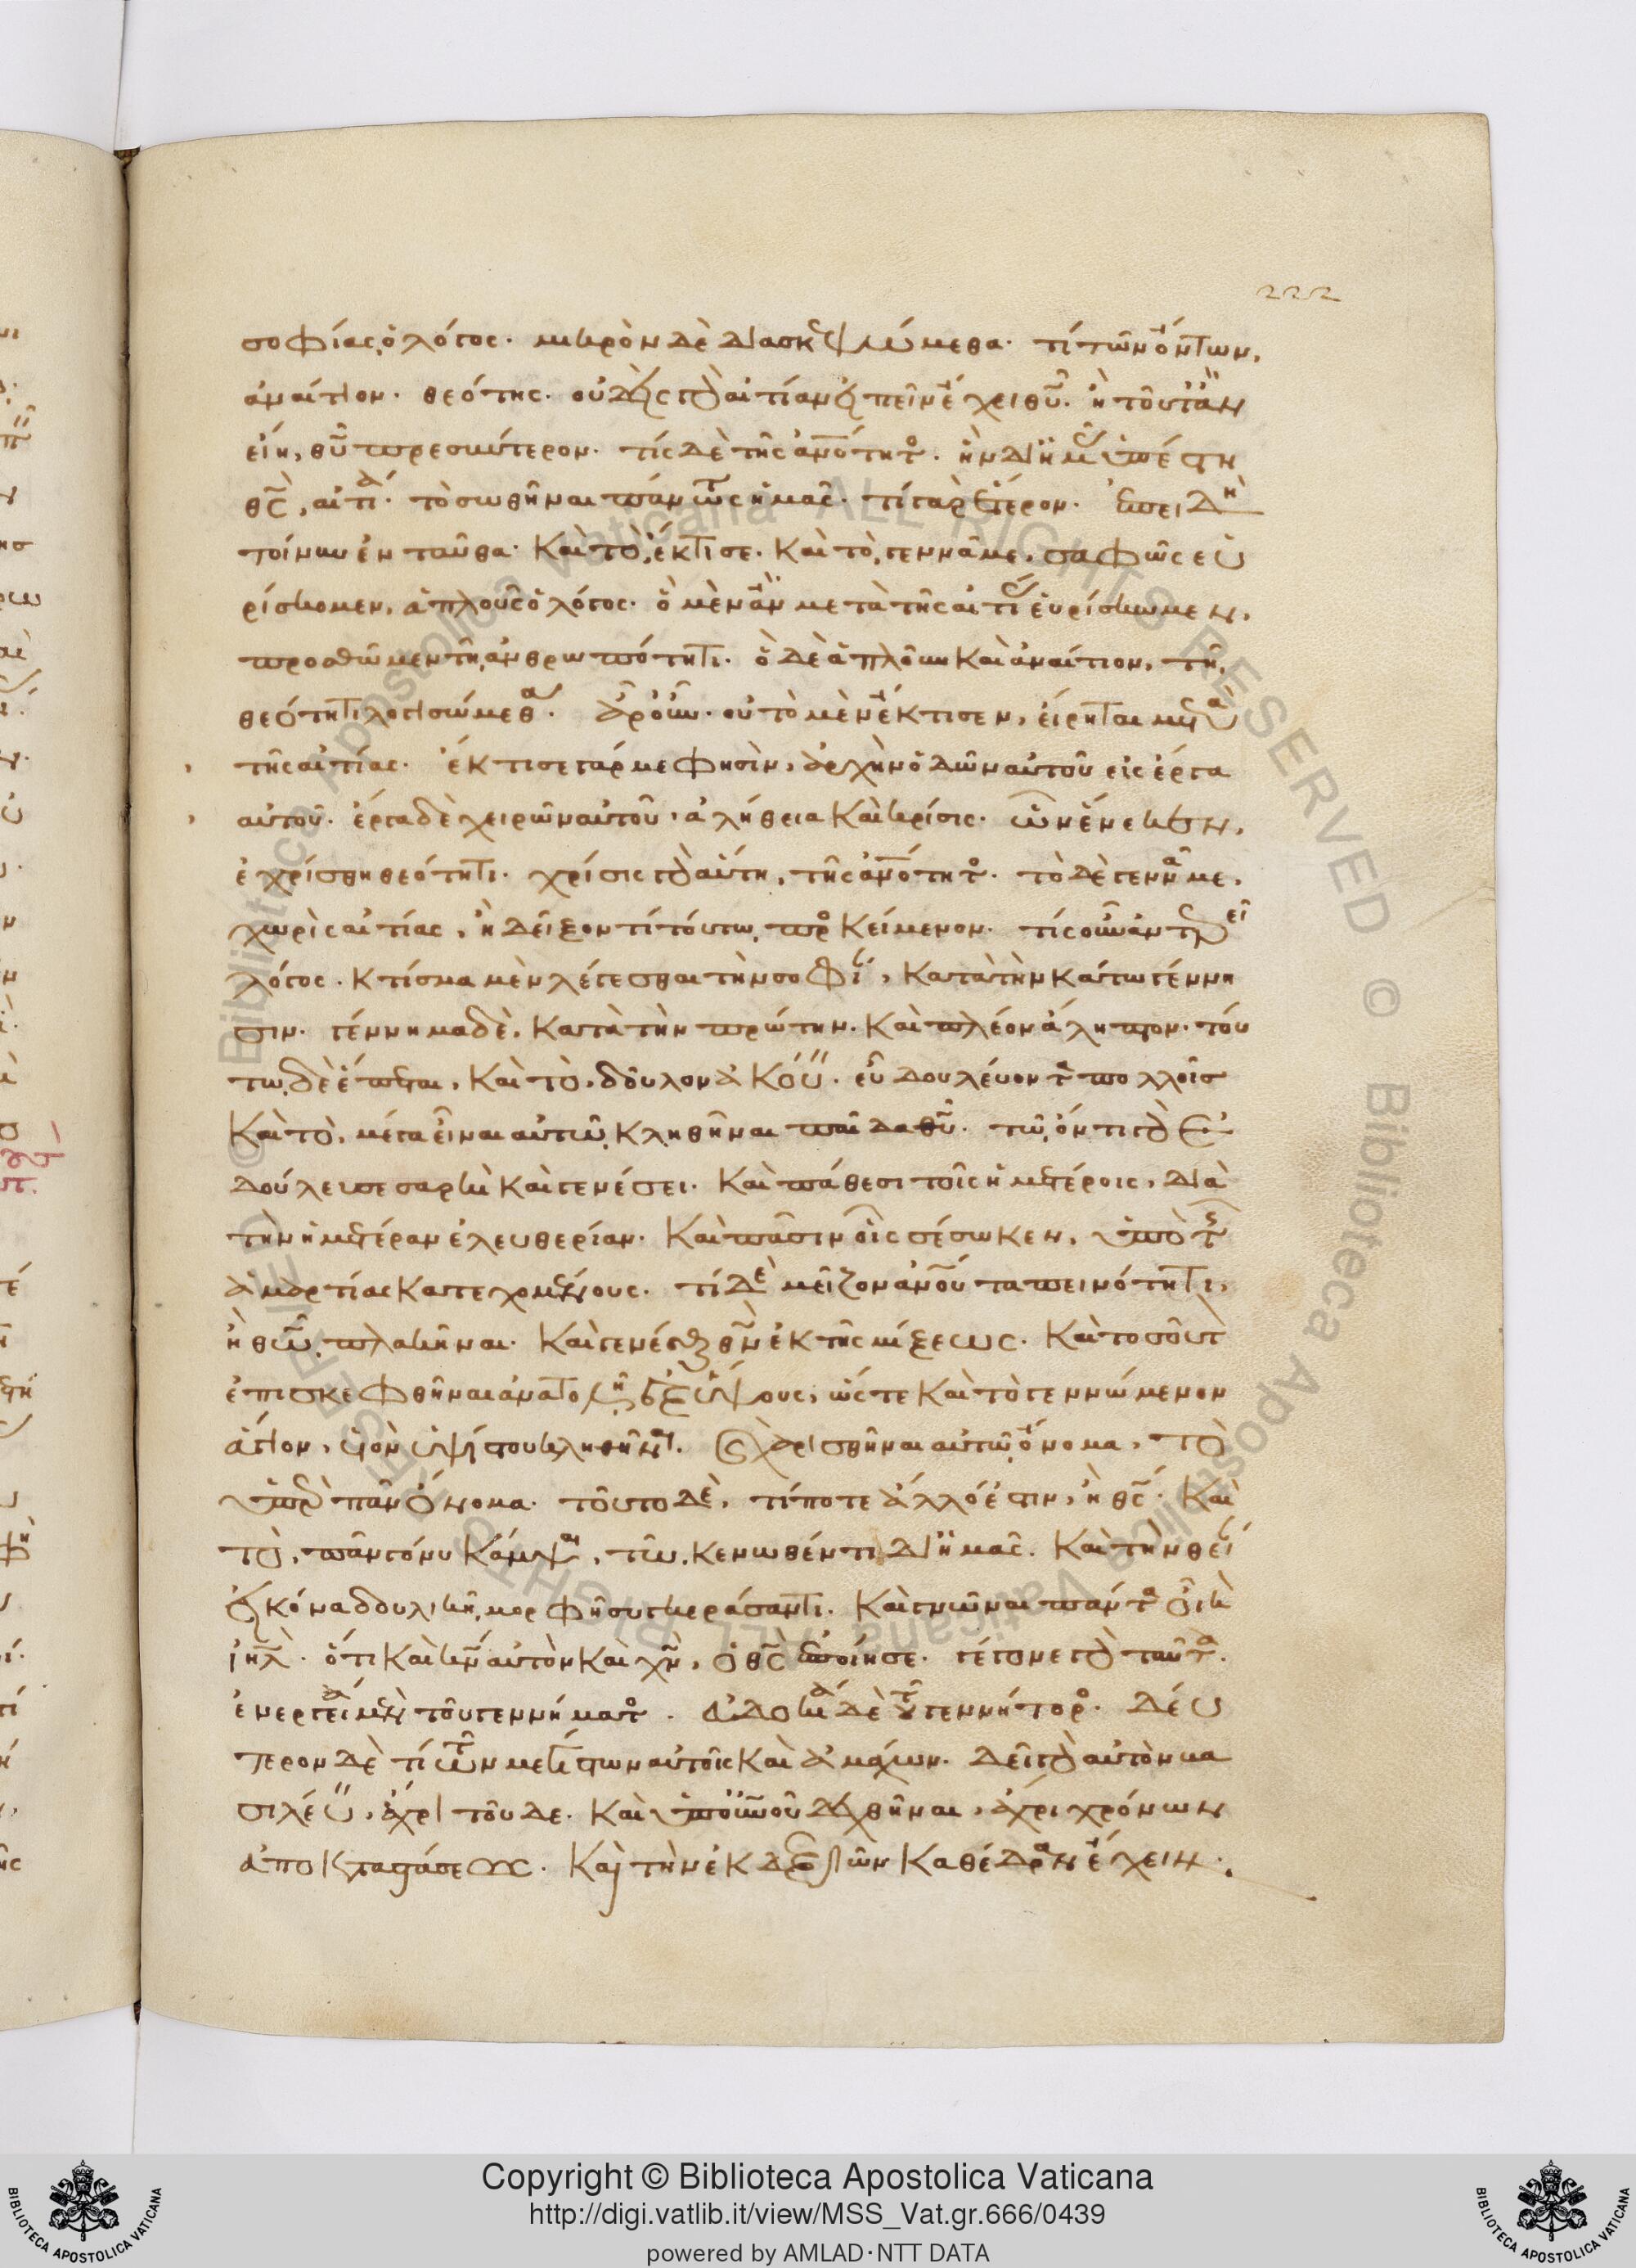 222
σοφίας, ὁ λόγος. μικρὸν δὲ διασκεψώμεθα. τί τῶν ὄντων,
ἀναίτιον. θεότης. οὐδεὶς γὰρ αἰτίαν εἰπεῖν ἔχει θῦ. ἢ τοῦτ' ἂν
εἴη, θῦ πρεσβύτερον. τίς δὲ τῆς ἀνότητος. ἣν δι' ἡμᾶς ὑπέστη
θς, αἰτία. τὸ σωθῆναι πάντως ἡμᾶς. τί γὰρ ἕτερον. ἐπειδὴ
τοίνυν ἐνταῦθα· καὶ τὸ, ἔκτισε. καὶ τὸ, γεννᾶ με, σαφῶς εὑ
ρίσκομεν, ἁπλοῦς ὁ λόγος. ὃ μὲν ἂν μετὰ τῆς αἰτίας εὑρίσκωμεν,
προσθῶμεν τῆ ἀνθρωπότητι. ὃ δὲ ἁπλοῦν καὶ ἀναίτιον, τῆ
θεότητι λογισώμεθα. ἆρ' οὖν. οὐ τὸ μὲν ἔκτισεν, εἴρηται μετὰ
τῆς αἰτίας. ἔκτισε γάρ με φησὶν, ἀρχὴν ὁδῶν αὐτοῦ εἰς ἔργα
αὐτοῦ. ἔργα δὲ χειρῶν αὐτοῦ, ἀλήθεια καὶ κρίσις. ὧν ἕνεκεν,
ἐχρίσθη θεότητι. χρίσις γὰρ αὕτη, τῆς ἀνότητος. τὸ δὲ γεννᾶ με,
χωρὶς αἰτίας, ἢ δεῖξον τί τούτω προσκείμενον. τίς οὖν ἀντερεῖ
λόγος. κτίσμα μὲν λέγεσθαι τὴν σοφίαν, κατὰ τὴν κάτω γέννη
σιν. γέννημα δὲ, κατὰ τὴν πρώτην. καὶ πλέον ἄληπτον. τού
τω δὲ ἕπεται, καὶ τὸ, δοῦλον ἀκούειν. εὖ δουλεύοντα πολλοῖς
καὶ τὸ, μέγα εἶναι αὐτῶ κληθῆναι παῖδα θῦ. τῶ ὄντι γὰρ ἐ
δούλευσε σαρκὶ καὶ γενέσει. καὶ πάθεσι τοῖς ἡμετέροις, διὰ
τὴν ἡμετέραν ἐλευθερίαν. καὶ πᾶσιν οἷς σέσωκεν, ὑπὸ τῆς
ἁμαρτίας κατεχομένους. τί δὲ μεῖζον ἀνοῦ ταπεινότητι,
ἢ θῶ πλακῆναι. καὶ γενέσθαι θν ἐκ τῆς μίξεως. καὶ τοσοῦτον
ἐπισκεφθῆναι ἀνατολῆ ἐξ ὕψους, ὥστε καὶ τὸ γεννώμενον
ἅγιον, υἱὸν ὑψίστου κληθῆναι. καὶ χαρισθῆναι αὐτῶ ὄνομα, τὸ
ὑπὲρ πᾶν ὄνομα. τοῦτο δὲ, τί ποτε ἄλλό ἐστιν, ἢ θς. καὶ
τὸ, πᾶν γόνυ κάμψαι, τῶ κενωθέντι δι' ἡμᾶς. καὶ τὴν θείαν
εἰκόνα δουλικῆ μορφῆ συγκεράσαντι. καὶ γνῶναι πάντα οἶκον
ιηλ. ὅτι καὶ κν αὐτὸν καὶ χν, ὁ θς ἐποίησε. γέγονε γὰρ ταῦτα.
ἐνεργεία μὲν τοῦ γεννήματος. εὐδοκία δὲ τοῦ γεννήτορος. δεύ
τερον δὲ τί τῶν μεγίστων αὐτοῖς καὶ ἀμάχων. δεῖ γὰρ αὐτὸν βα
σιλεύειν, ἄχρι τοῦδε. καὶ ὑπὸ οὐνοῦ δεχθῆναι, ἄχρι χρόνων
ἀποκαταστάσεως. καὶ τὴν ἐκ δεξιῶν καθέδραν ἔχειν.
Copyright © Biblioteca Apostolica Vaticana
http://digi.vatlib.it/view/MSS_Vat.gr.666/0439
powered by AMLAD·NTT DATA